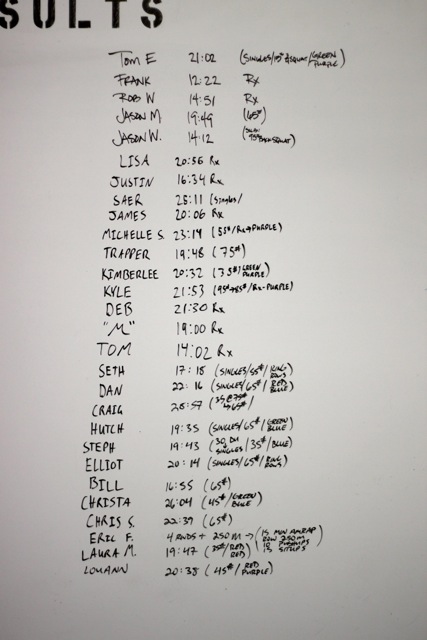 SULTS
TOM E 21:02 (SINGLES/15# SQUAT/GREEN PURPLE)
FRANK 12:22 Rx
ROB W 14:51 Rx
JASON M 19:49 (65#)
JASON W. 14:12 (95# BACKSQUAT)
LISA 20:56 Rx
JUSTIN 16:34 Rx
SAER 25:11 (Singles/
JAMES 20:06 Rx
MICHELLE S. 23:14 (55#/Rx→PURPLE)
TRAPPER 19:48 (75#)
KIMBERLEE 20:32 (35#/GREEN PURPLE)
KYLE 21:53 (95#→85#/Rx-PURPLE)
DEB 21:30 Rx
"M" 19:00 Rx
TOM 14:02 Rx
SETH 17:18 (SINGLES/55#/RING ROWS)
DAN 22:16 (SINGLES/65#/RED BLUE)
CRAIG 28:57 (35@75# →65#/
HUTCH 19:35 (SINGLES/65#/GREEN BLUE)
STEPH 19:43 (30 DU SINGLES/35#/BLUE)
ELLIOT 20:14 (SINGLES/65#/RING ROWS)
BILL 16:55 (65#)
CHRISTA 26:04 (45#/GREEN BLUE)
CHRIS S. 22:39 (65#)
ERIC F. 4 RNDS + 250M → (15 MIN AMRAP ROW 250M 10 PUSHUPS 15 SITUPS)
LAURA M. 19:47 (35#/RED RED)
LOUANN 20:38 (45#/RED PURPLE)